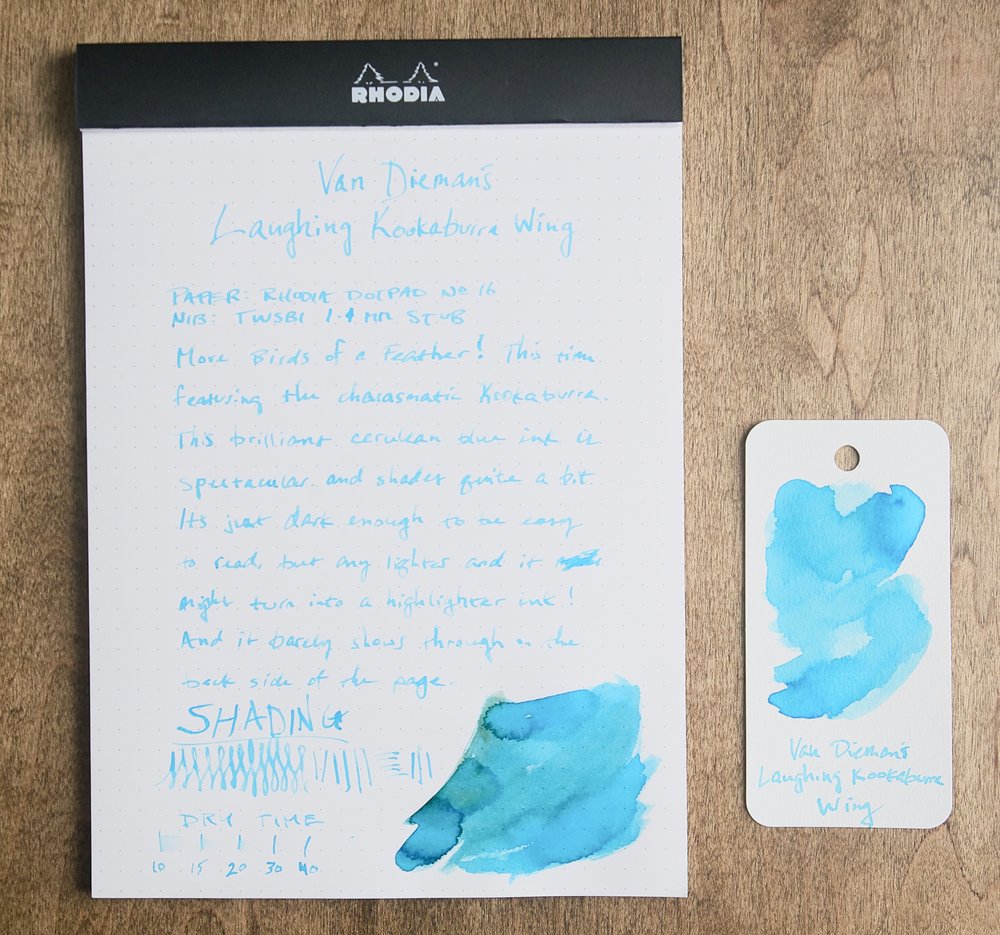 RHODIA
Van Dieman's
Laughing Kookaburra Wing
PAPER: RHODIA DOTPAD No 16
NIB: TWSBI 1.4 MM STUB
More Birds of a Feather! This time
featuring the charasmatic Kookaburra.
This brilliant cerulean blue ink is
spectacular and shades quite a bit.
It's just dark enough to be easy
to read, but any lighter and it
might turn into a highlighter ink!
And it barely shows through on the
back side of the page.
SHADING
DRY TIME
10 15 20 30 40
Van Dieman's
Laughing Kookaburra
Wing